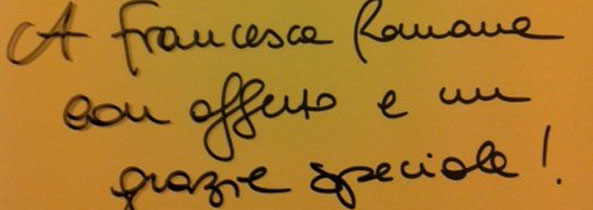 A Francesca Romana
con affetto e un
grazie speciale!